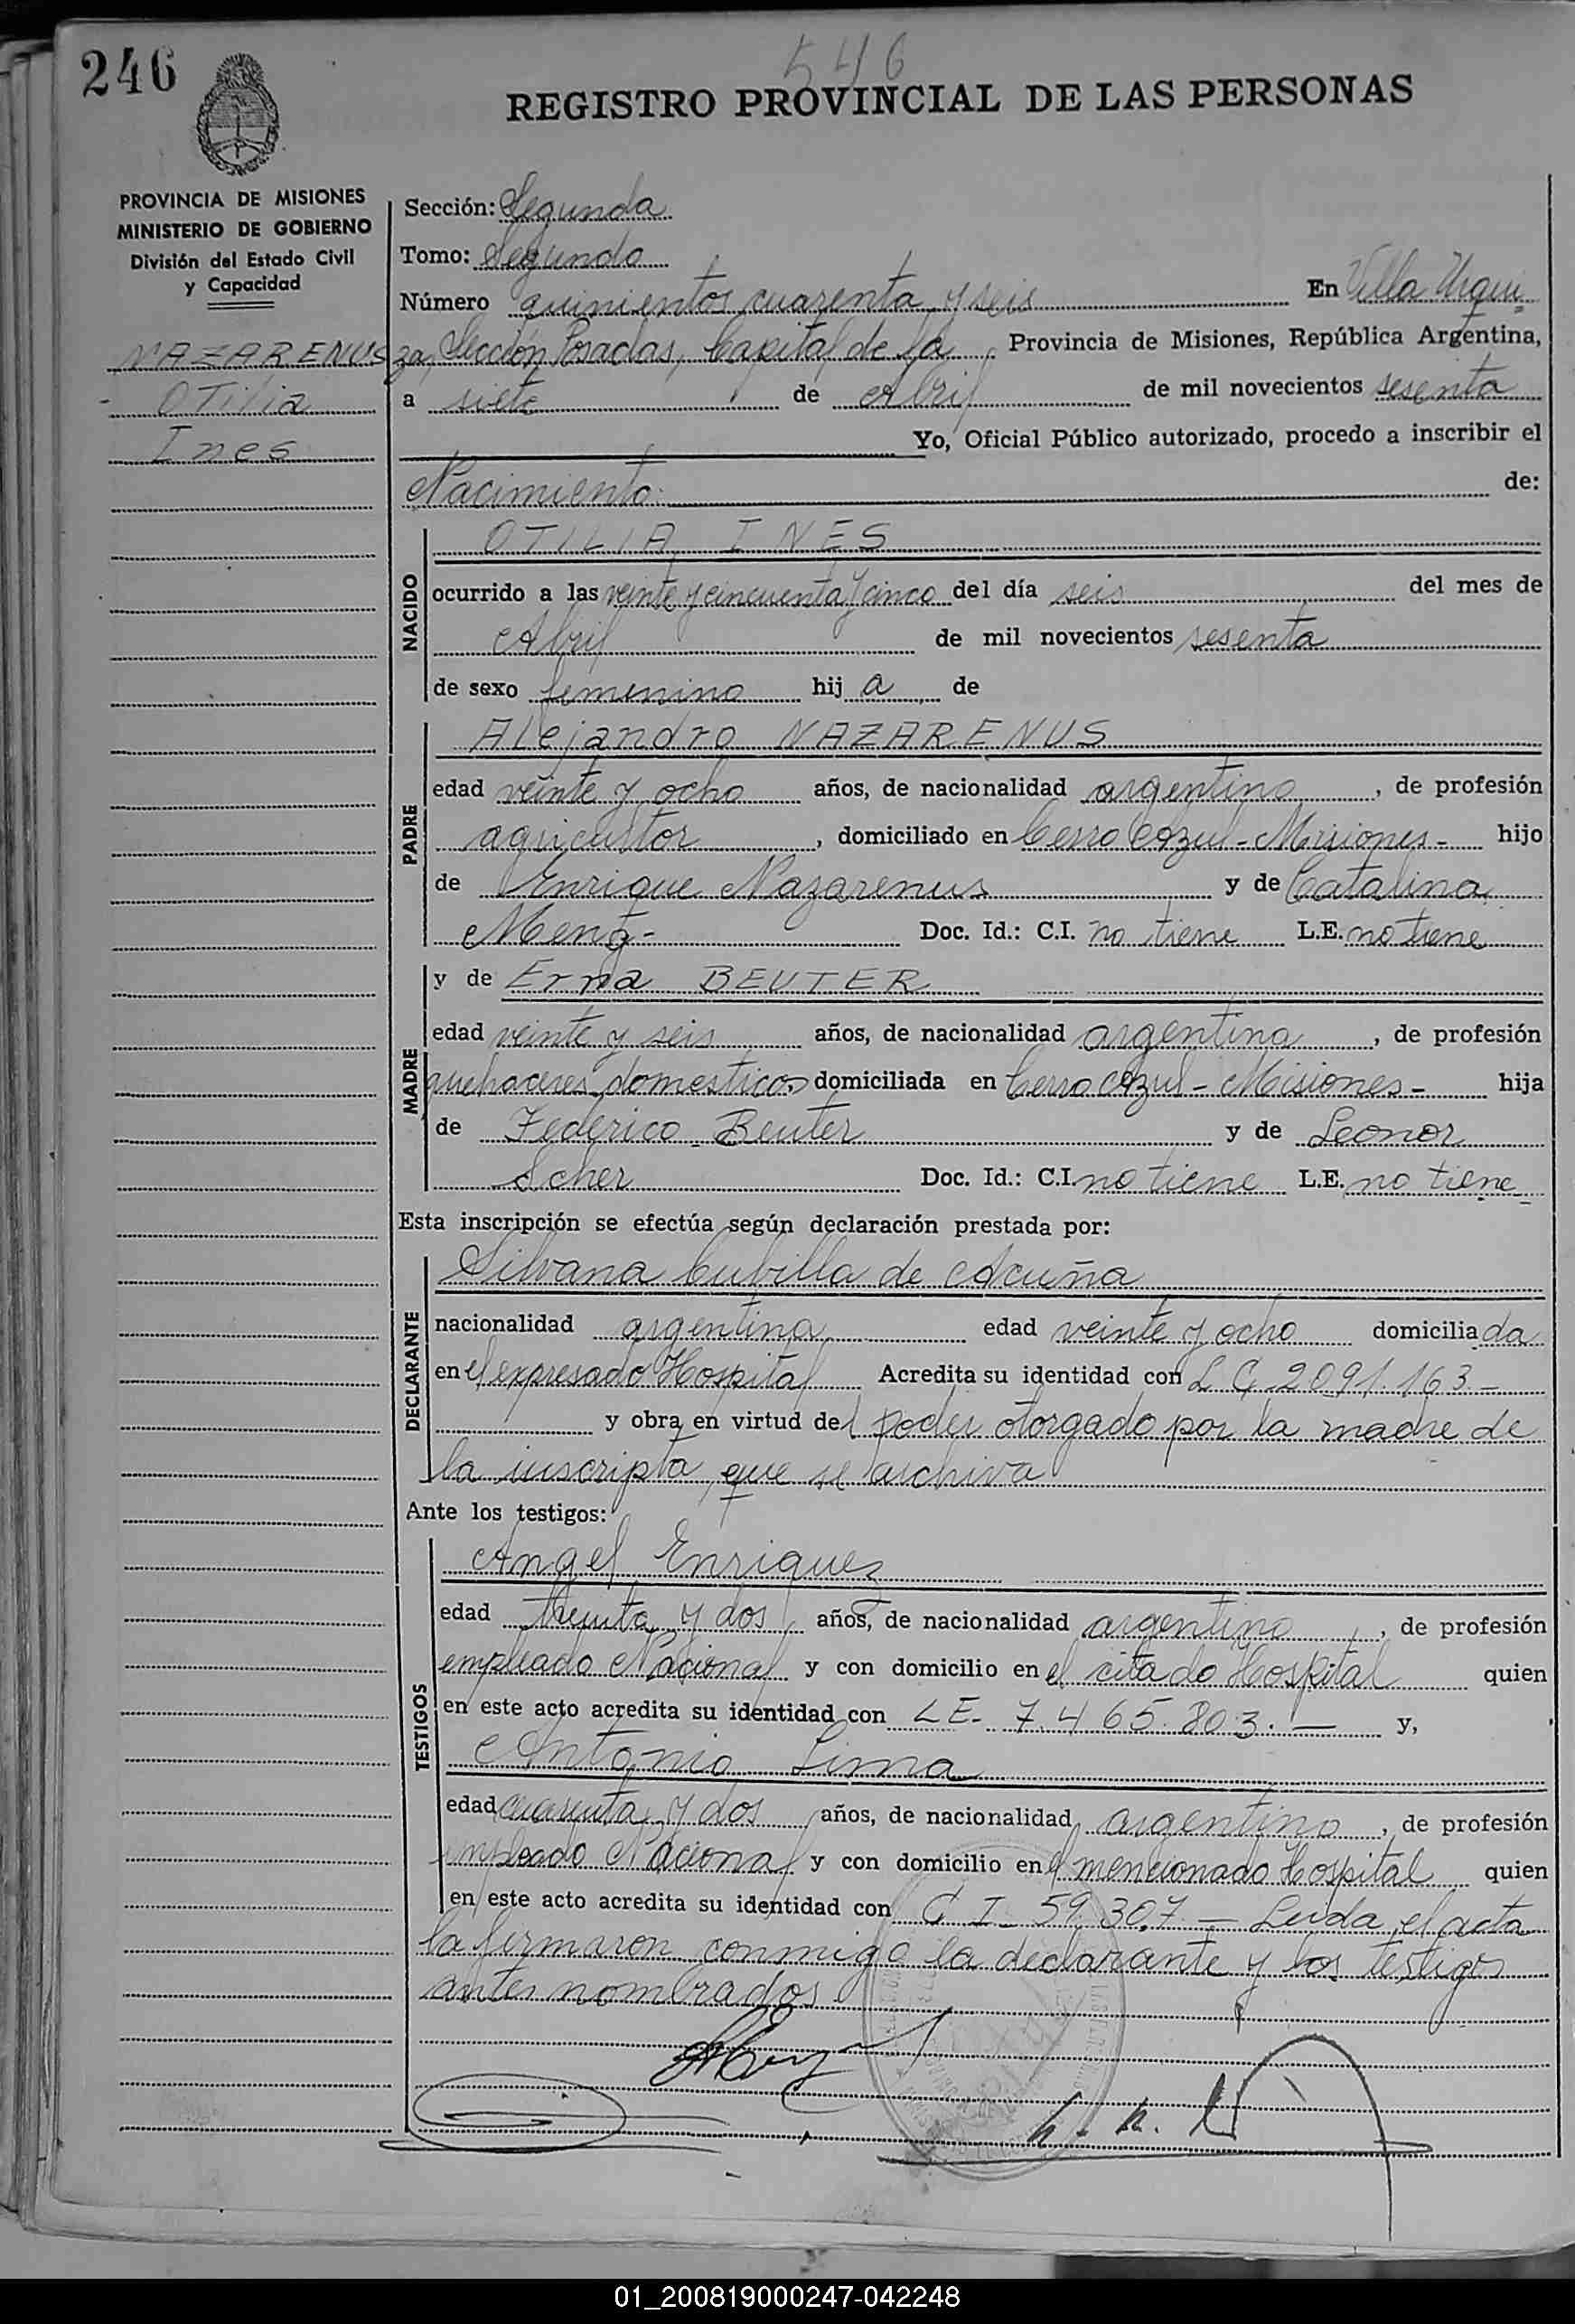 246
546
REGISTRO PROVINCIAL DE LAS PERSONAS
PROVINCIA DE MISIONES
MINISTERIO DE GOBIERNO
División del Estado Civil
y Capacidad
NAZARENUS
OTilia
Ines
Sección: Segunda
Tomo: Segundo
Número quinientos cuarenta y seis En Villa Urqui
za, Sección Posadas, Capital de la Provincia de Misiones, República Argentina,
a siete de Abril de mil novecientos sesenta
Yo, Oficial Público autorizado, procedo a inscribir el
Nacimiento de:
NACIDO
OTILIA INES
ocurrido a las veinte y cincuenta y cinco del día seis del mes de
Abril de mil novecientos sesenta
de sexo femenino hij a de
PADRE
Alejandro NAZARENUS
edad veinte y ocho años, de nacionalidad argentino, de profesión
agricultor, domiciliado en Cerro Azul - Misiones - hijo
de Enrique Nazarenus y de Catalina
Menz - Doc. Id.: C.I. no tiene L.E. no tiene
MADRE
y de Erna BEUTER
edad veinte y seis años, de nacionalidad argentina, de profesión
quehaceres domesticos, domiciliada en Cerro Azul - Misiones - hija
de Federico Beuter y de Leonor
Scher Doc. Id.: C.I. no tiene L.E. no tiene
Esta inscripción se efectúa según declaración prestada por:
DECLARANTE
Silvana Cubilla de Acuña
nacionalidad argentina edad veinte y ocho domiciliada
en el expresado Hospital Acredita su identidad con L C 2.091.163 -
y obra en virtud del poder otorgado por la madre de
la inscripta, que se archiva
Ante los testigos:
TESTIGOS
Angel Enriquez
edad treinta y dos años, de nacionalidad argentino, de profesión
empleado Nacional y con domicilio en el citado Hospital quien
en este acto acredita su identidad con L E - 7.465.803. - y,
Antonio Lima
edad cuarenta y dos años, de nacionalidad argentino, de profesión
empleado Nacional y con domicilio en el mencionado Hospital quien
en este acto acredita su identidad con C I - 59.307 - Leida el acta
la firmaron conmigo la declarante y los testigos
antes nombrados.
01_200819000247-042248